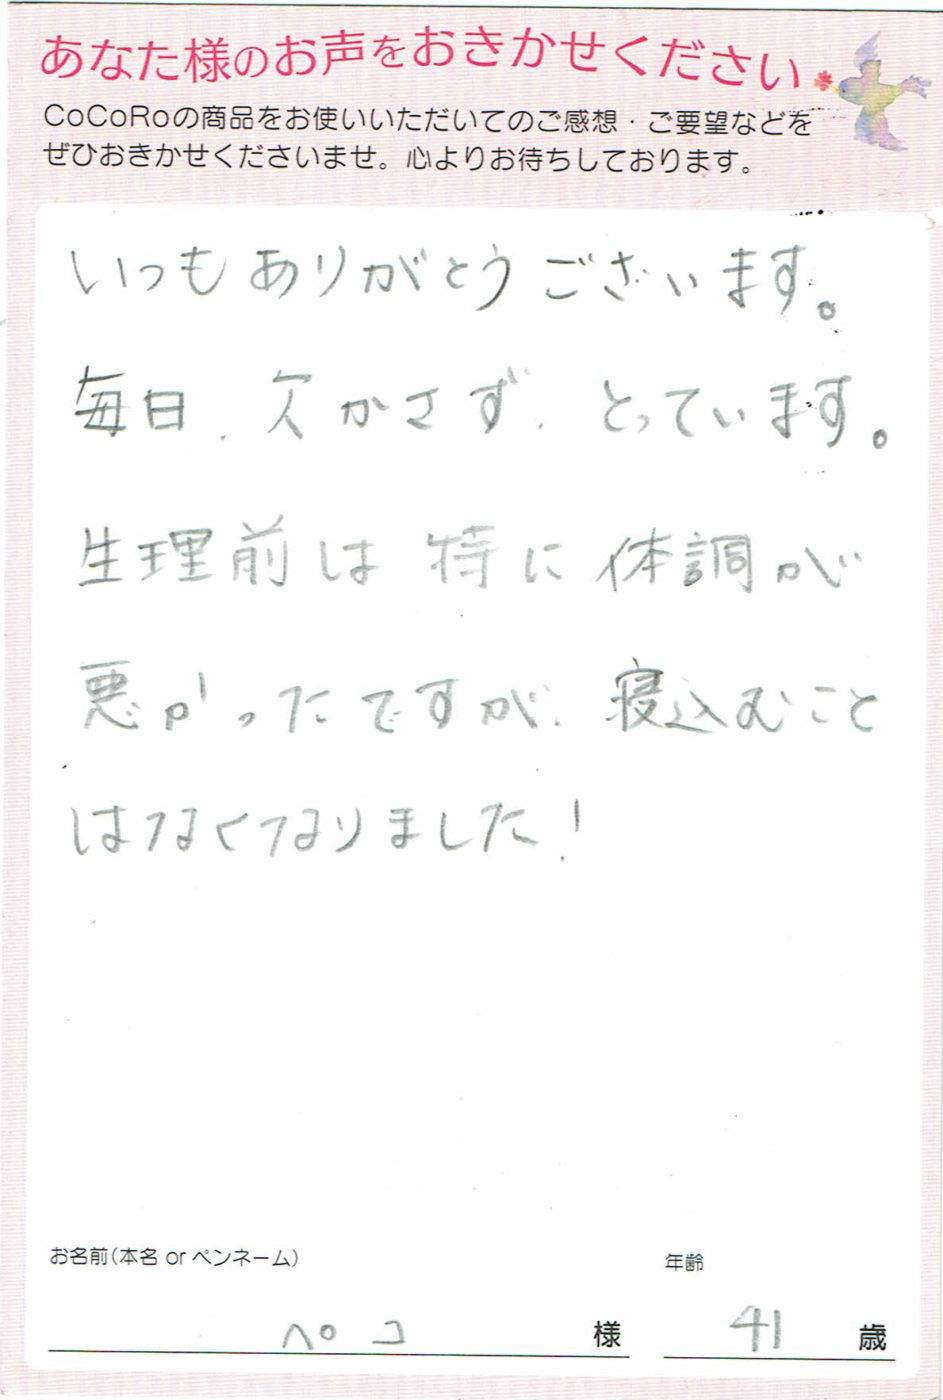 あなた様のお声をおきかせください
CoCoRoの商品をお使いいただいてのご感想・ご要望などを
ぜひおきかせくださいませ。心よりお待ちしております。
いつもありがとうございます。
毎日、欠かさず、とっています。
生理前は特に体調が
悪かったですが、寝込むこと
はなくなりました!
お名前(本名 or ペンネーム)
年齢
ペコ 様
41 歳